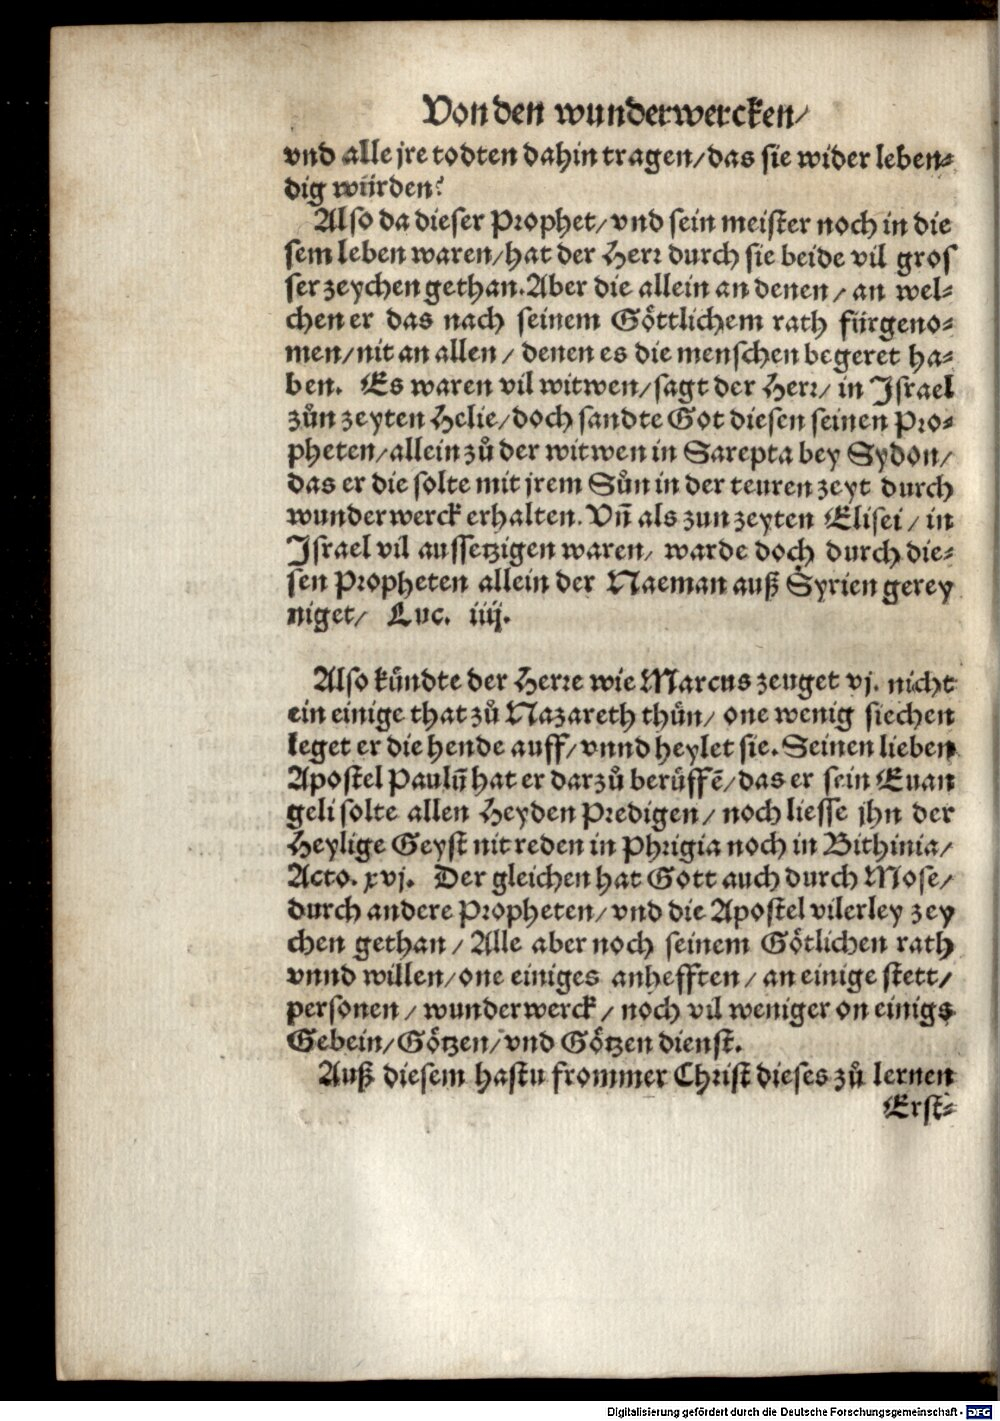 Von den wunderwercken/
vnd alle jre todten dahin tragen/das sie wider leben⸗
dig würden?
Also da dieser Prophet/vnd sein meister noch in die
sem leben waren/hat der Herr durch sie beide vil gros
ser zeychen gethan.Aber die allein an denen/ an wel⸗
chen er das nach seinem Göttlichem rath fürgeno⸗
men/nit an allen/ denen es die menschen begeret ha⸗
ben. Es waren vil witwen/sagt der Herr/ in Israel
zůn zeyten Helie/doch sandte Got diesen seinen Pro⸗
pheten/allein zů der witwen in Sarepta bey Sydon/
das er die solte mit jrem Sůn in der teuren zeyt durch
wunderwerck erhalten. Vñ als zun zeyten Elisei/ in
Israel vil aussetzigen waren/ warde doch durch die⸗
sen Propheten allein der Naeman auß Syrien gerey
niget/ Luc. iiij.
Also kündte der Herre wie Marcus zeuget vj. nicht
ein einige that zů Nazareth thůn/ one wenig siechen
leget er die hende auff/vnnd heylet sie. Seinen lieben
Apostel Paulū hat er darzů berůffē/das er sein Euan
geli solte allen Heyden Predigen/ noch liesse jhn der
Heylige Geyst nit reden in Phrigia noch in Bithinia/
Acto. xvj. Der gleichen hat Gott auch durch Mose/
durch andere Propheten/vnd die Apostel vilerley zey
chen gethan/ Alle aber noch seinem Götlichen rath
vnnd willen/one einiges anhefften/ an einige stett/
personen/ wunderwerck/ noch vil weniger on einigs
Gebein/Götzen/vnd Götzen dienst.
Auß diesem hastu frommer Christ dieses zů lernen
Erst⸗
Digitalisierung gefördert durch die Deutsche Forschungsgemeinschaft - DFG